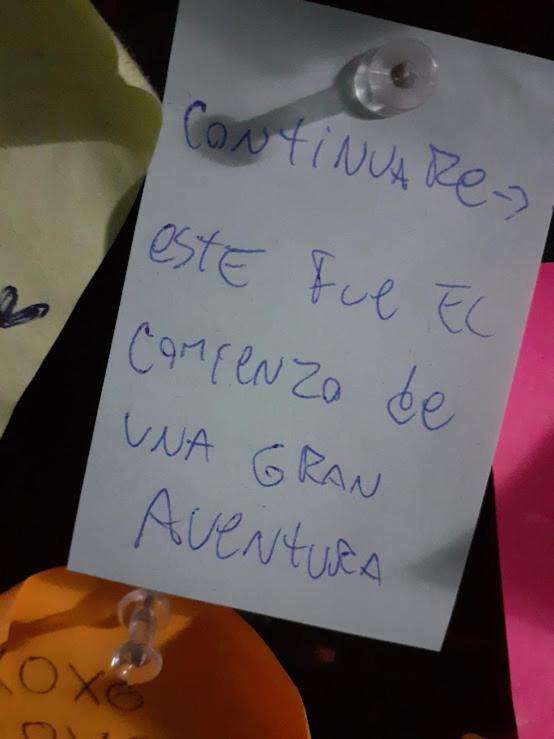 CONTINUARE→
ESTE FUE EL
COMIENZO de
UNA GRAN
AVENTURA
XOXO